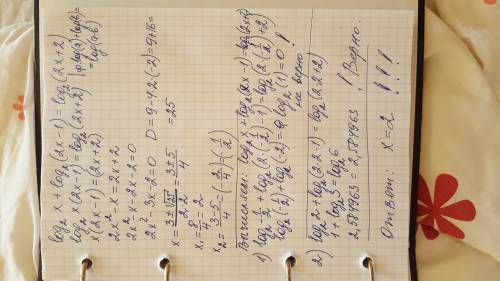 log₂ x + log₂ (2x - 1) = log₂ (2x + 2)
log₂ x(2x - 1) = log₂ (2x + 2) | φ: log(a) + log(b) =
x(2x - 1) = (2x + 2) = log(a·b)
2x² - x = 2x + 2
2x² - x - 2x - 2 = 0
2x² - 3x - 2 = 0 D = 9 - 4·2·(-2) = 9 + 16 =
= 25
x = (3 ± √25)/(2·2) = (3 ± 5)/4
x₁ = 8/4 = 2
x₂ = (3 - 5)/4 = (-2/4) = (-1/2)
log₂ x + log₂ (2x - 1) = log₂ (2x + 2)
1) log₂ -1/2 + log₂ (2·(-1/2) - 1) = log₂ (2·(-1/2) + 2)
log₂ (-1/2) + log₂ (-2) = log₂ (1) = 0 !
не верно
2) log₂ 2 + log₂ (2·2 - 1) = log₂ (2·2 + 2)
1 + log₂ 3 = log₂ 6
2,584963 = 2,584963 ! Верно.
Ответ: x = 2 !!!